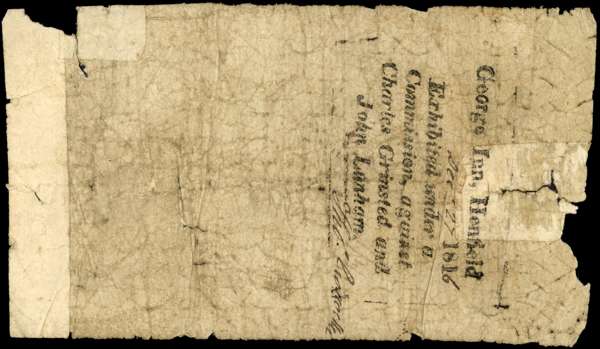 George Inn, Henfield
1816
Exhibited under a
Commission, against
Charles Grinsted and
John Lanham